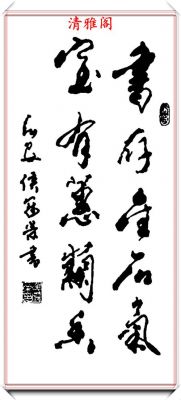 清雅阁
書存金石氣
室有蕙蘭香